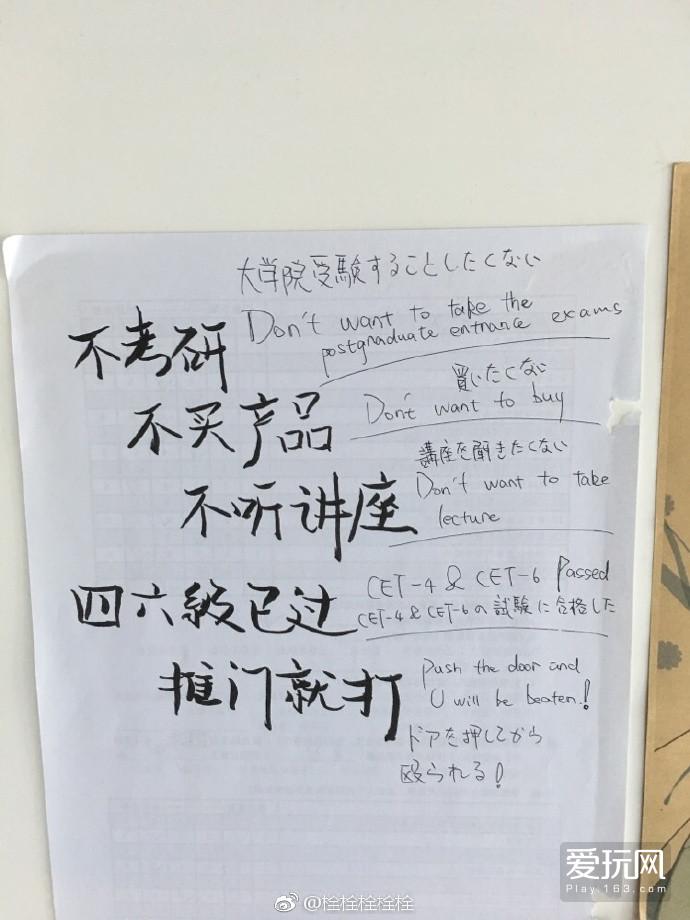 大学院受験することしたくない
不考研
Don't want to take the
postgraduate entrance exams
買いたくない
不买产品
Don't want to buy
講座を聞きたくない
不听讲座
Don't want to take
lecture
四六级已过
CET-4 & CET-6 Passed
CET-4 & CET-6の試験に合格した
推门就打
Push the door and
U will be beaten!
ドアを押してから
殴られる!
@栓栓栓栓栓
爱玩网
Play.163.com